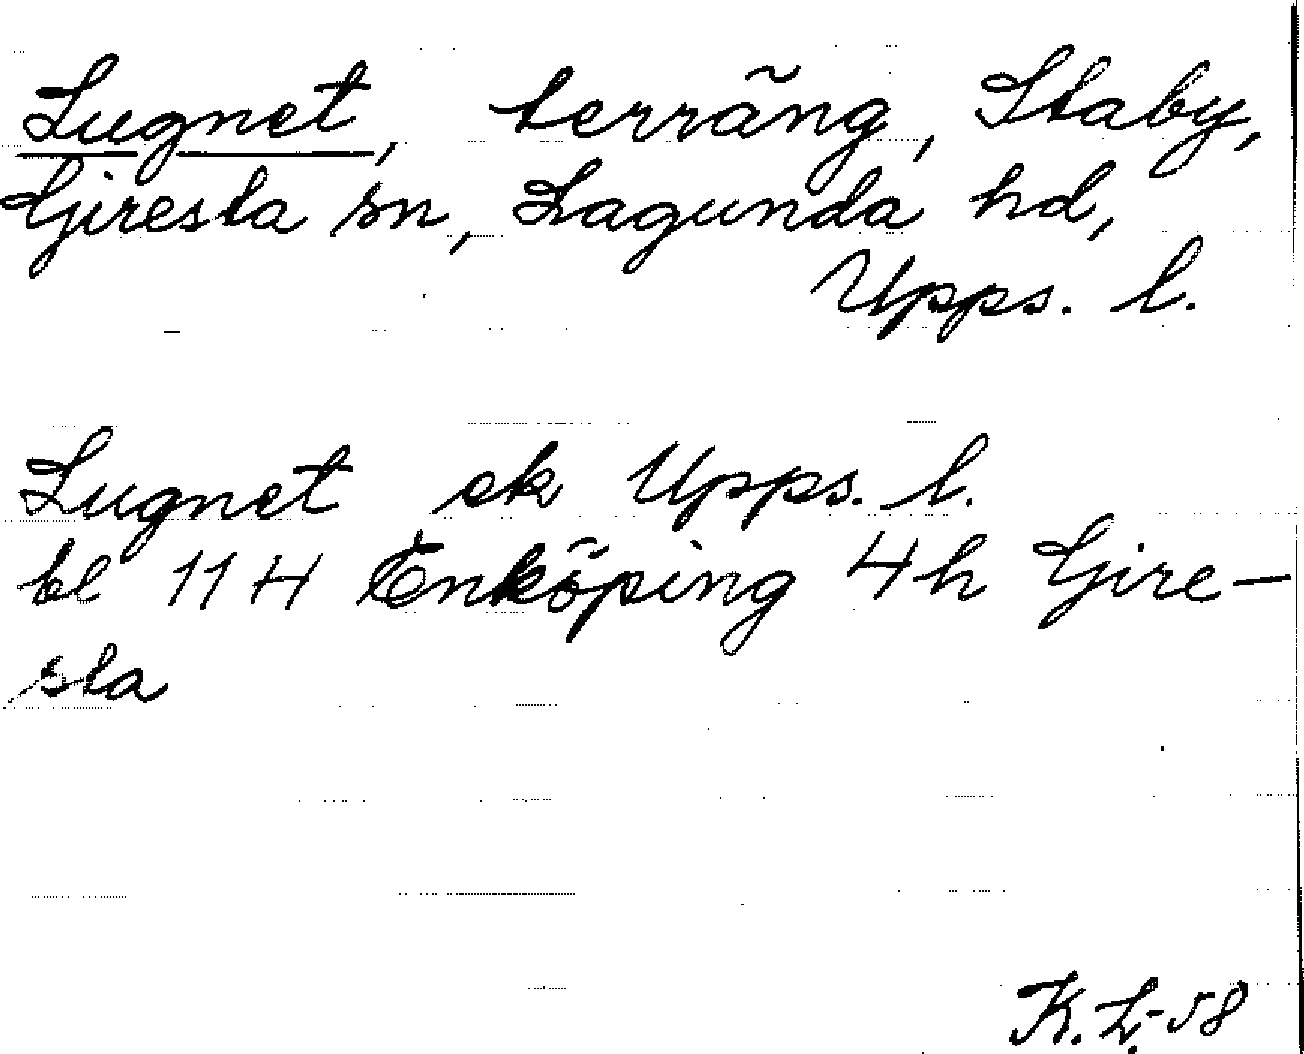 Lugnet, terräng, Staby,
Giresta sn, Lagunda hd,
Upps. l.
Lugnet ek Upps. l.
bl 11 H Enköping 4h Gire-
sta
K. L.-58